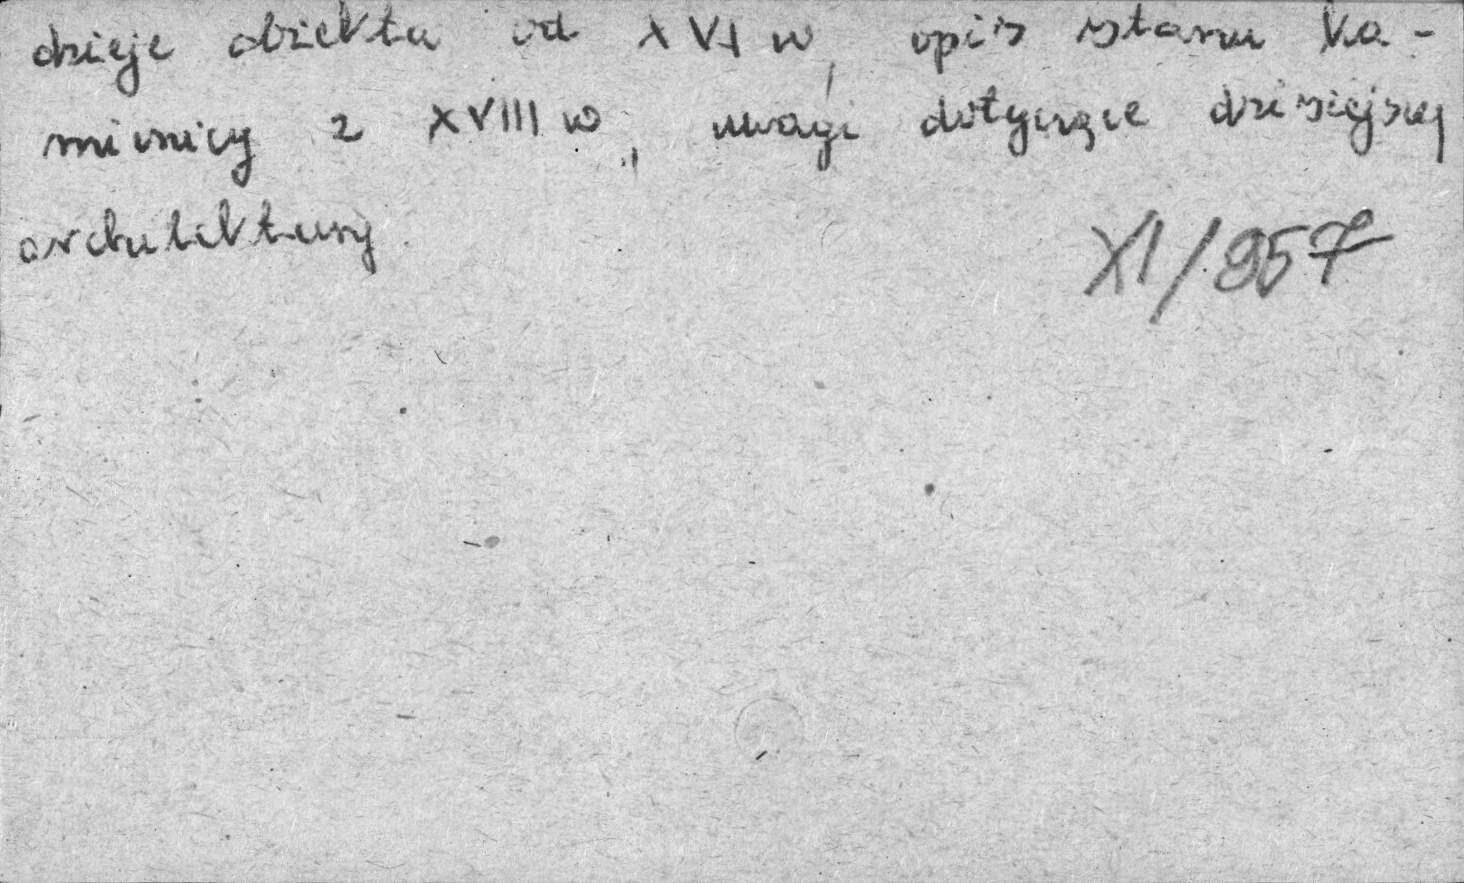 dzieje obiektu od XVI w, opis stanu ka-
mienicy z XVIII w., uwagi dotyczące dzisiejszej
architektury.
XI/957